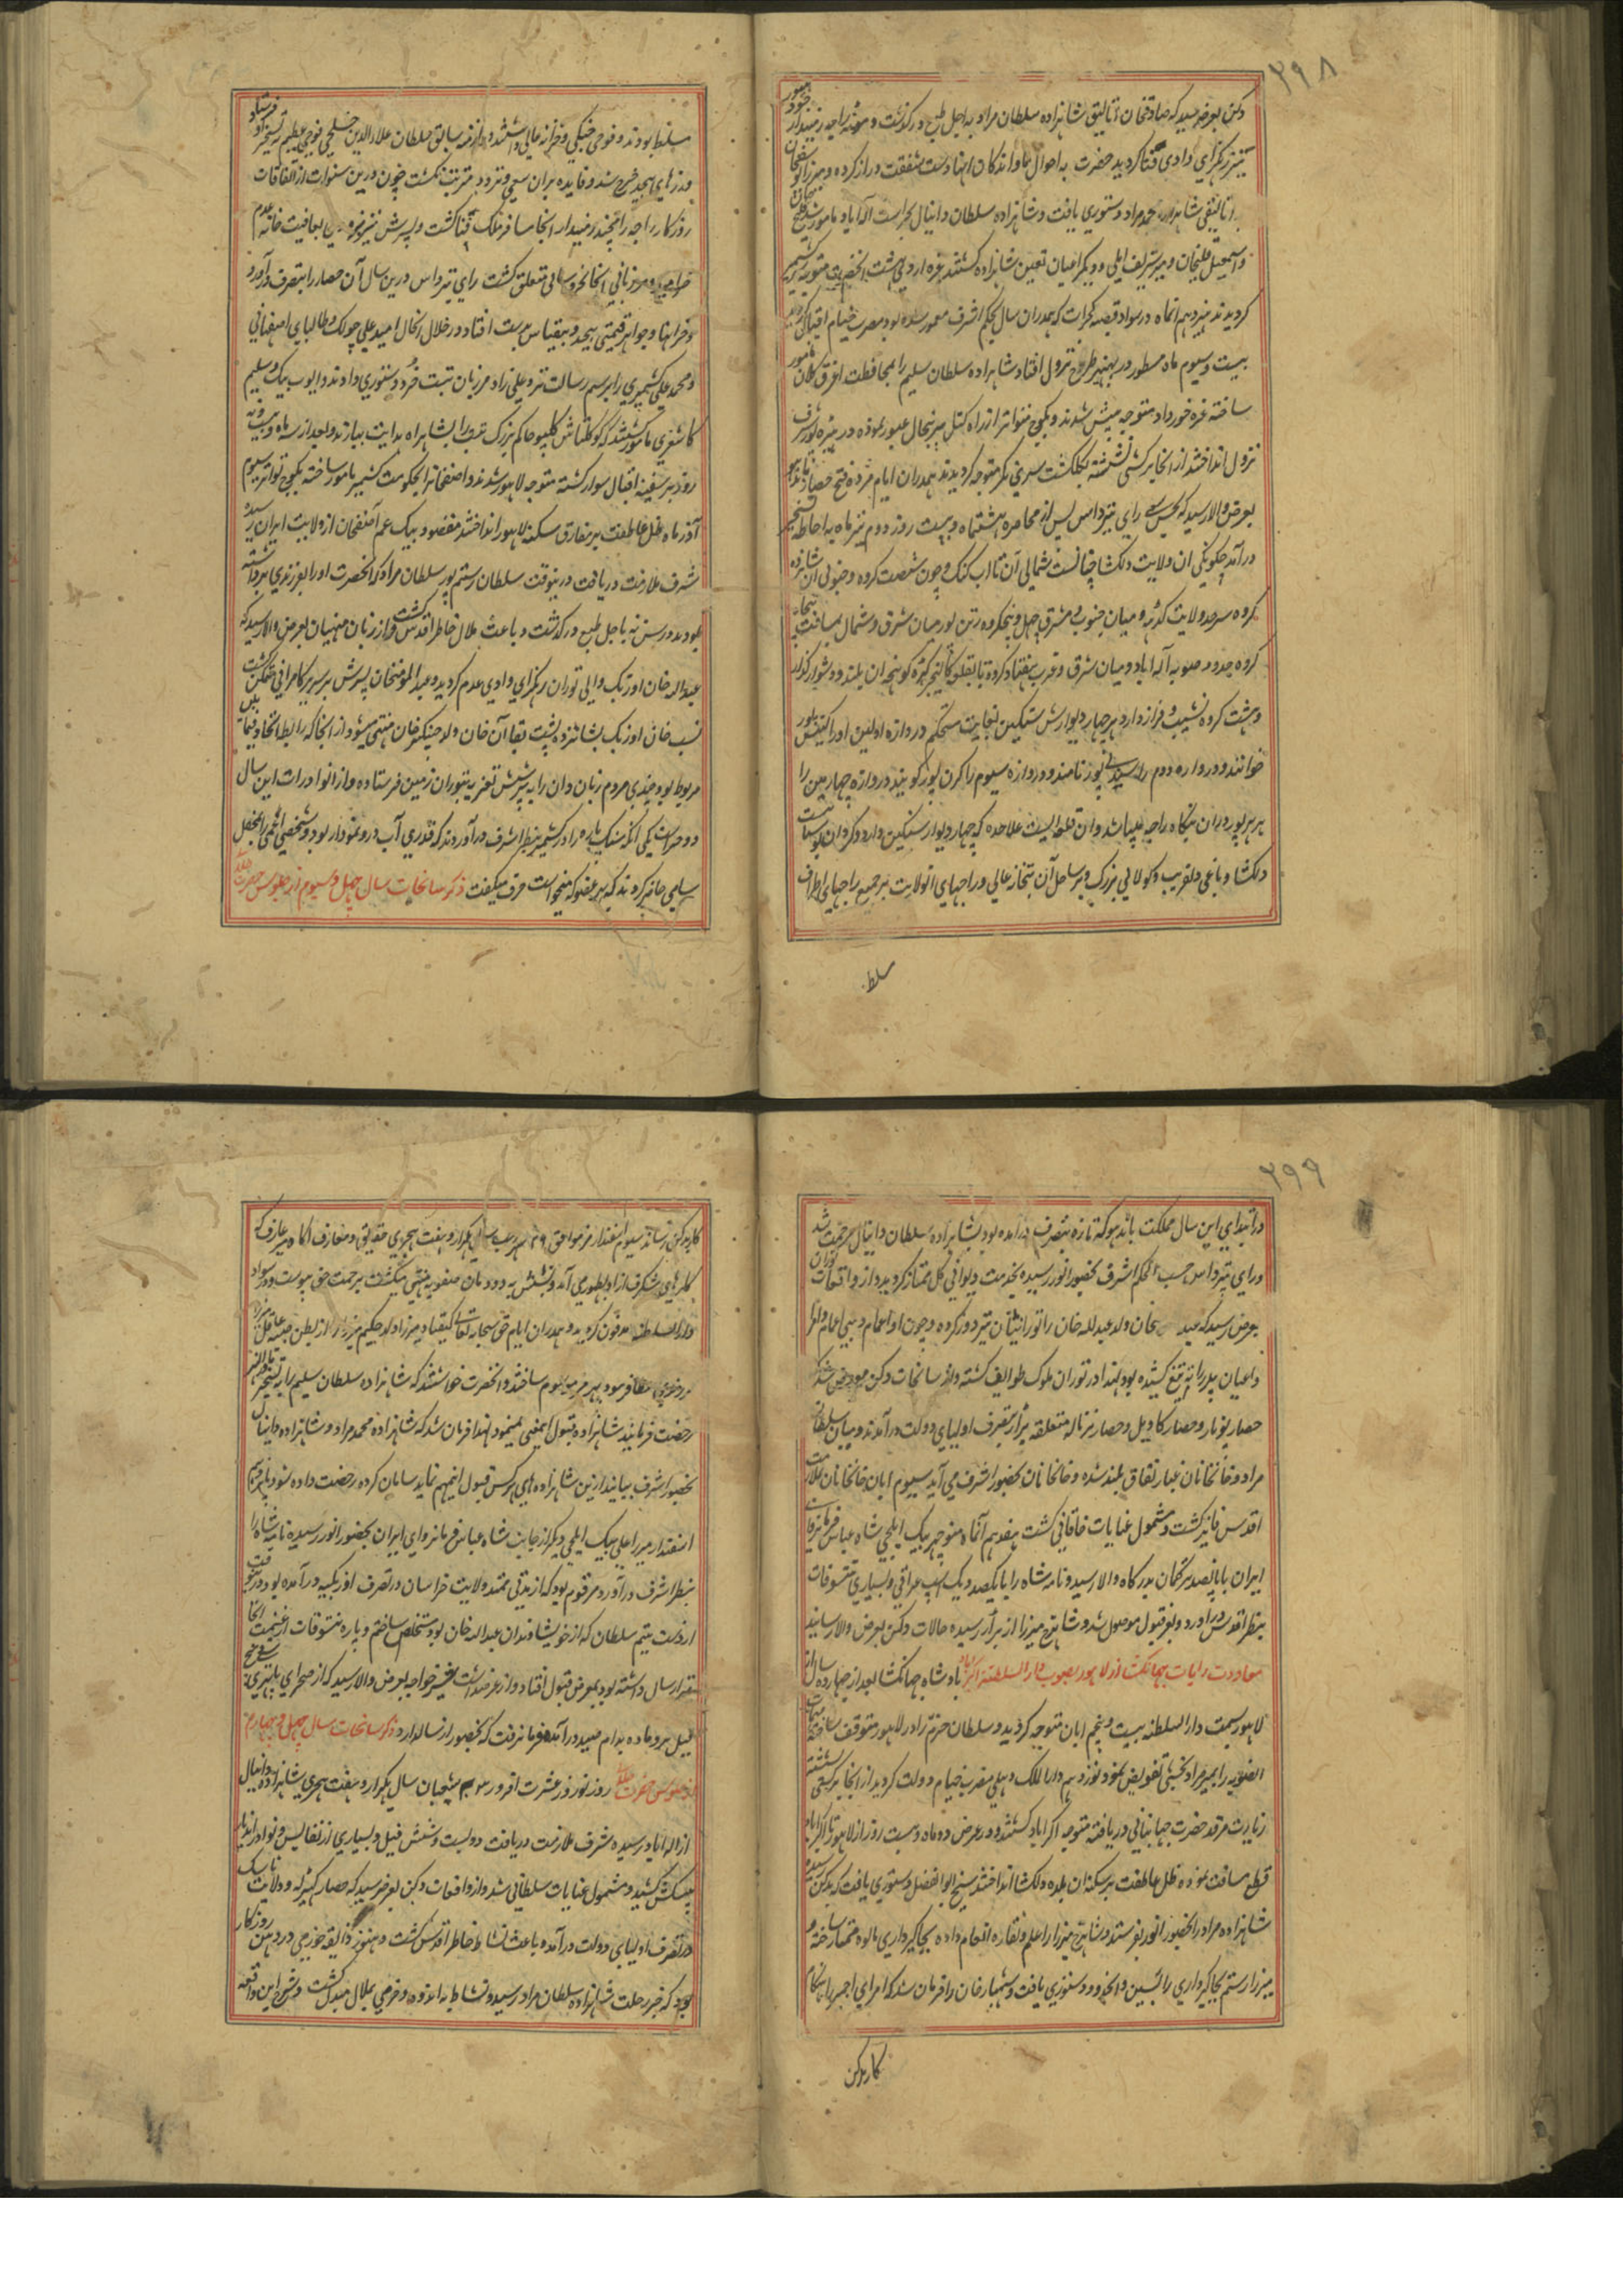 ۲۹۸
دکن بعرض رسید که صادقخان اتالیق شاهزاده سلطان مراد به اجل طبع درگذشت و راجه زمیندار
نیز رهگرای وادی فنا گردید حضرت به احوال بازماندگان انها دست شفقت دراز کرده و میرزا یوسفخان
اتالیقی شاهزاده محمد مراد دستوری یافت و شاهزاده سلطان دانیال بحراست اله آباد مامور شد
و اسمعیل قلیخان و میر شریف املی و دیگر اعیان تعین شاهزاده گشتند غره اردی بهشت انحضرت متوجه کشمیر
گردیدند هیزدهم انماه در سواد قصبه گجرات که همدران سال بحکم اشرف معمور شده بود مضرب خیام اقبال
بیست و سیوم ماه مسطور در بهنبر طرح نزول افتاد شاهزاده سلطان سلیم را بمحافظت اغرق کلان مامور
ساخته غره خورداد متوجه پیش شدند و بکوچ متواتر از راه کتل پیرپنجال عبور نموده در هیره پور شرف
نزول انداختند از انجا بر کشتی نشسته بگلگشت سری نگر متوجه گردیدند همدران ایام مژده فتح حصار باندهو
بعرض والا رسید که بحسن سعی رای پترداس پس از محاصره هشتماه و بیست روز دوم تیر ماه به احاطه تسخیر
درآمد چگونگی ان ولایت دلکشا چنانست شمالی آن تا اب گنگ و جون شصت کروه و جنوبی آن شانزده
کروه سرحد ولایت گدهه و میان جنوب و مشرق چهل و پنجکروه رتن پور میان مشرق و شمال بمسافت پنجاه
کروه حدود صوبه اله اباد و میان شرق و غرب هفتاد کروه تا بقلعه کالنجر کوهچه ان بلند و دشوار گذار
و هشت کروه نشیب و فراز دارد هر چهار دیوارش سنگین بغایت مستحکم دروازه اولین او را گنیش پور
خوانند و دروازه دوم را پور نامند و دروازه سیوم را کرن پور گویند دروازه چهارمین را
هر هر پور در ان بنگاه راجه میباشد و ان قلعه ایست علاحده که چهار دیوار سنگین دارد و گردان بوستانیست
دلکشا و باغی دلفریب و کولابی بزرگ و بر ساحل آن بتخانه عالی و راجهای انولایت بر جمیع راجهای اطراف
سلط
مسلط بودند و فوجی جنگی و خزانه عالی داشتند و در ازمنه سابق سلطان علاءالدین خلجی فوجی عظیم به تسخیر او فرستاد
و زرهای بیحد خرج شد و فایده بران سعی و تردد مترتب نگشت چون درین سنوات از اتفاقات
روزگار راجه رامچند زمیندار انجا مسافر ملک فنا گشت و پسرش نیز بعافیت خانه عدم
خرامید و مرزبانی انجا بخورد سالی متعلق گشت رای پترداس درین سال آن حصار را بتصرف درآورد
و خزاینها و جواهر قیمتی بیحد و بیقیاس بدست افتاد در خلال انحال امید علی چولک و طالبای اصفهانی
و محمد علی کشمیری را برسم رسالت نزد علی زاد مرزبان تبت خرد دستوری دادند و ایوب بیک و سلیم
کاشغری مامور شدند که گوکلتاش کلپو حاکم بزرگ تبت را بشاهراه هدایت بیارند و بعد از سه ماه و بیست و نه
روز بر سفینه اقبال سوار گشته متوجه لاهور شدند و اصفخانرا بحکومت کشمیر مامور ساخته بکوچ متواتر سیوم
آذر ماه ظل عاطفت بر مفارق سکنه لاهور انداختند مقصود بیک عم آصفخان از ولایت ایران رسیده
شرف ملازمت دریافت درینوقت سلطان رستم پور سلطان مراد که انحضرت او را بفرزندی برداشته
بودند در سن نه باجل طبع درگذشت و باعث ملال خاطر اقدس گشت و از زبان منهیان بعرض والا رسید که
عبدالله خان اوزبک والی توران رهگرای وادی عدم گردید و عبدالمومنخان پسرش بر سریر کامرانی متمکن گشت
نسب خان اوزبک بشانزده پشت بقاآن خان ولد چنگیز خان منتهی میشود از انجا که رابطه اتحاد فیمابین
مربوط بود چندی مردم زبان دان را به پرسش تعزیه بتوران زمین فرستاده و از انوادرات این سال
دو چیز است یکی انکه سنگ پاره را در کشمیر بنظر اشرف درآوردند که قدری آب درو نمودار بود و شخصی اعمی را بمحفل
سلیمی حاضر کردند که هر عضو که میخواست حرف میگفت ذکر سانحات سال چهل و سیوم از جلوس حضرت
۲۹۹
در ابتدای این سال مملکت باندهو که تازه بتصرف درآمده بود بشاهزاده سلطان دانیال مرحمت شد
و رای پترداس حسب الحکم اشرف بحضور انور رسیده بخدمت دیوانی کل ممتاز گردید و از واقعات توران
بعرض رسید که عبد خان ولد عبدالله خان را تورانیان بتیر دوز کرده و چون او اعمام و بنی اعمام و امرا
و اعیان پدر را بتیغ کشیده بود لهذا در توران ملوک طوایف گشته و از سانحات دکن معروض شد که
حصار پونار و حصار کاویل و حصار نرناله متعلقه برار بتصرف اولیای دولت درآمدند و میان سلطان
مراد و خانخانان غبار نفاق بلند شده و خانخانان بحضور اشرف می آید سیوم ابان خانخانان بملازمت
اقدس فایز گشت و مشمول عنایات خاقانی گشت هفدهم آنماه منوچهر بیک ایلچی شاه عباس فرمانروای
ایران با پانصد ترکمان بدرگاه والا رسید و نامه شاه را با یکصد و یک اسپ عراقی و بسیاری تنسوقات
بنظر اقدس دراورد و بعز قبول موصول شد و شاهرخ میرزا از برار رسیده حالات دکن بعرض والا رسانید
معاودت رایات جهانگشا از لاهور بصوب دارالسلطنه اکبراباد پادشاه جهانگشا بعد از چهارده سال از
لاهور بسمت دارالسلطنه بیست و پنجم ابان متوجه گردید و سلطان خرم را در لاهور متوقف ساخته مهمات
انصوبه را بمیر مراد بخشی تفویض نمود و نوزدهم دارالملک دهلی مضرب خیام دولت گردید از انجا بر کشتی نشسته
زیارت مرقد حضرت جهانبانی دریافته متوجه اکبراباد گشتند و در عرض دو ماه و بیست روز از لاهور تا اکبراباد
قطع مسافت نموده ظل عاطفت بر سکنه ان بلده دلکشا انداختند شیخ ابوالفضل دستوری یافت که بدکن رسیده
شاهزاده مراد را بحضور انور بفرستد و شاهرخ میرزا را علم و نقاره انعام داده بجاگیرداری مالوه ممتاز ساخته و
میرزا رستم بجاگیرداری رایسین و انحدود دستوری یافت و شهباز خان را فرمان شد که امرای اجمیر را بهنگام
کار بدکن
کار بدکن رساند سیوم اسفندار مز موافق ۲۶ شهر رجب سال یکهزار و هفت هجری حقایق و معارف اگاه میر عارف که
کارهای شگرف از او بظهور می آمد و نسبش به دودمان صفویه منتهی میگشت برحمت حق پیوست و در سواد
دارالسلطنه مدفون گردید و همدران ایام حق سبحانه تعالی کیقباد میرزا ولد حکیم میرزا را از بطن
سرفراز فرمود بهر مز موسوم ساختند و انحضرت خواستند که شاهزاده سلطان سلیم را به تسخیر ماوراءالنهر
رخصت فرمایند شاهزاده قبول اینمعنی نمینمود لهذا فرمان شد که شاهزاده محمد مراد و شاهزاده دانیال
بحضور اشرف بیایند ازین شاهزاده‌های هر کس قبول اینمهم نماید سامان کرده رخصت داده شود
اسفندار میرزا علی بیک ایلچی دیگر از جانب شاه عباس فرمانروای ایران بحضور انور رسیده نامه شاه را
بنظر اشرف درآورد مرقوم بود که از مدتی ممتد ولایت خراسان در تصرف اوزبکیه درآمده بود درینوقت
از دست یتیم سلطان که از خویشاوندان عبدالله خان بود مستخلص ساختم و پاره تنسوقات از غنیمت انجا
ارسال داشته بود بمعرض قبول افتاد و از عرضداشت خواجه بعرض والا رسید که از صحرای
فیل نر و ماده بدام صید درآمد فرمان رفت که بحضور ارسال دارد ذکر سانحات سال چهل و چهارم
از جلوس حضرت روز نوروز عشرت افروز ۴ شعبان سال یکهزار و هفت هجری شاهزاده دانیال
از اله اباد رسیده شرف ملازمت دریافت دویست و شش فیل و بسیاری از نفایس و نوادر اندیار
پیشکش کشید و مشمول عنایات سلطانی شد و از واقعات دکن بعرض رسید که حصار کهیرله و ولایت ناسک
در تصرف اولیای دولت درآمده باعث نشاط خاطر اقدس گشت و هنوز ذایقه خورمی در دهن روزگار
بود که خبر رحلت شاهزاده سلطان مراد رسید و نشاط به اندوه و خرمی بملال مبدل گشت و شرح این واقعه